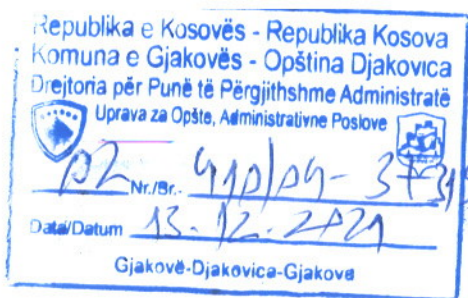 Republika e Kosovës - Republika Kosova
Komuna e Gjakovës - Opština Djakovica
Drejtoria për Punë të Përgjithshme Administratë
Uprava za Opšte, Administrativne Poslove
Nr./Br.-
Data/Datum 13.12.2021
Gjakovë-Djakovica-Gjakova